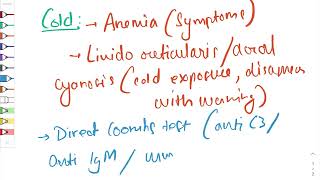 Cold: - Anemia (Symptoms)
- Livido reticularis / acral
cyanosis (cold exposure, disappears
with warming)
→ Direct Coombs test (anti C3/
anti IgM /